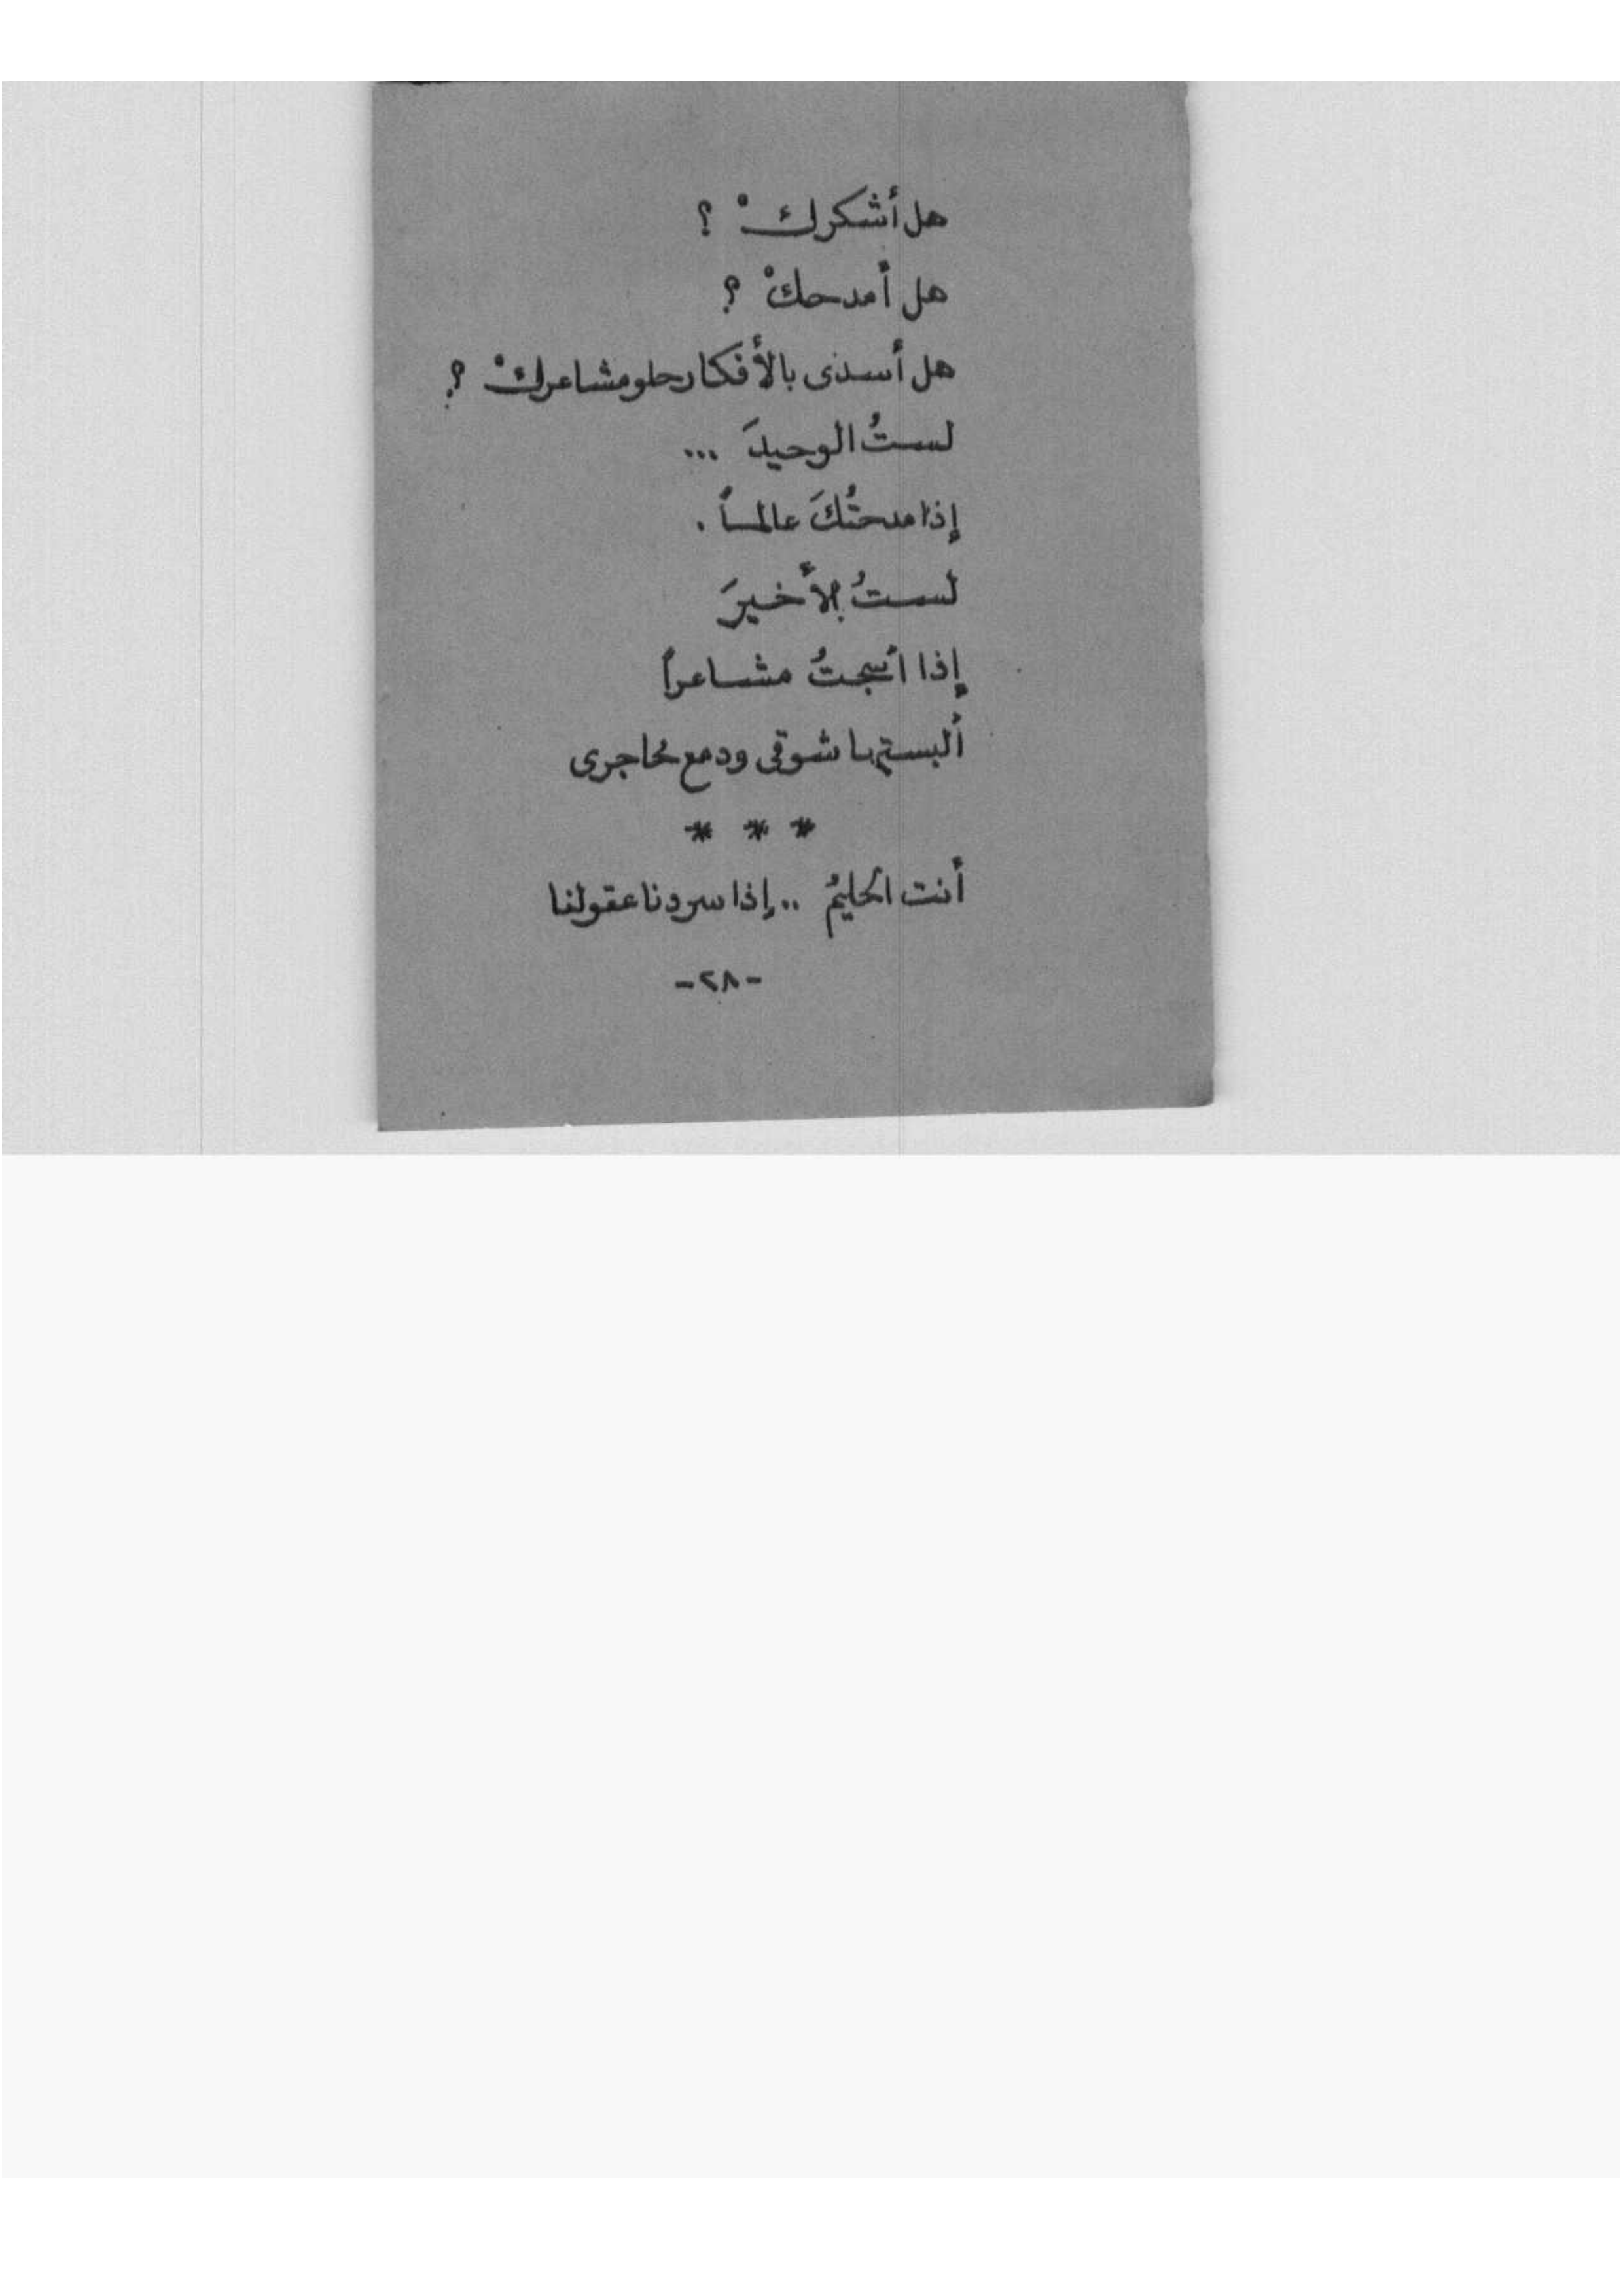 هل أشكركْ ؟
هل أمدحكْ ؟
هل أسدى بالأفكار حلو مشاعركْ ؟
لستُ الوحيدَ ...
إذا مدحتُكَ عالماً .
لستُ الأخيرَ
إذا نسجتُ مشاعراً
ألبستها شوقى ودمع محاجرى
* * *
أنت الحليمُ .. إذا سردنا عقولنا
-٢٨-